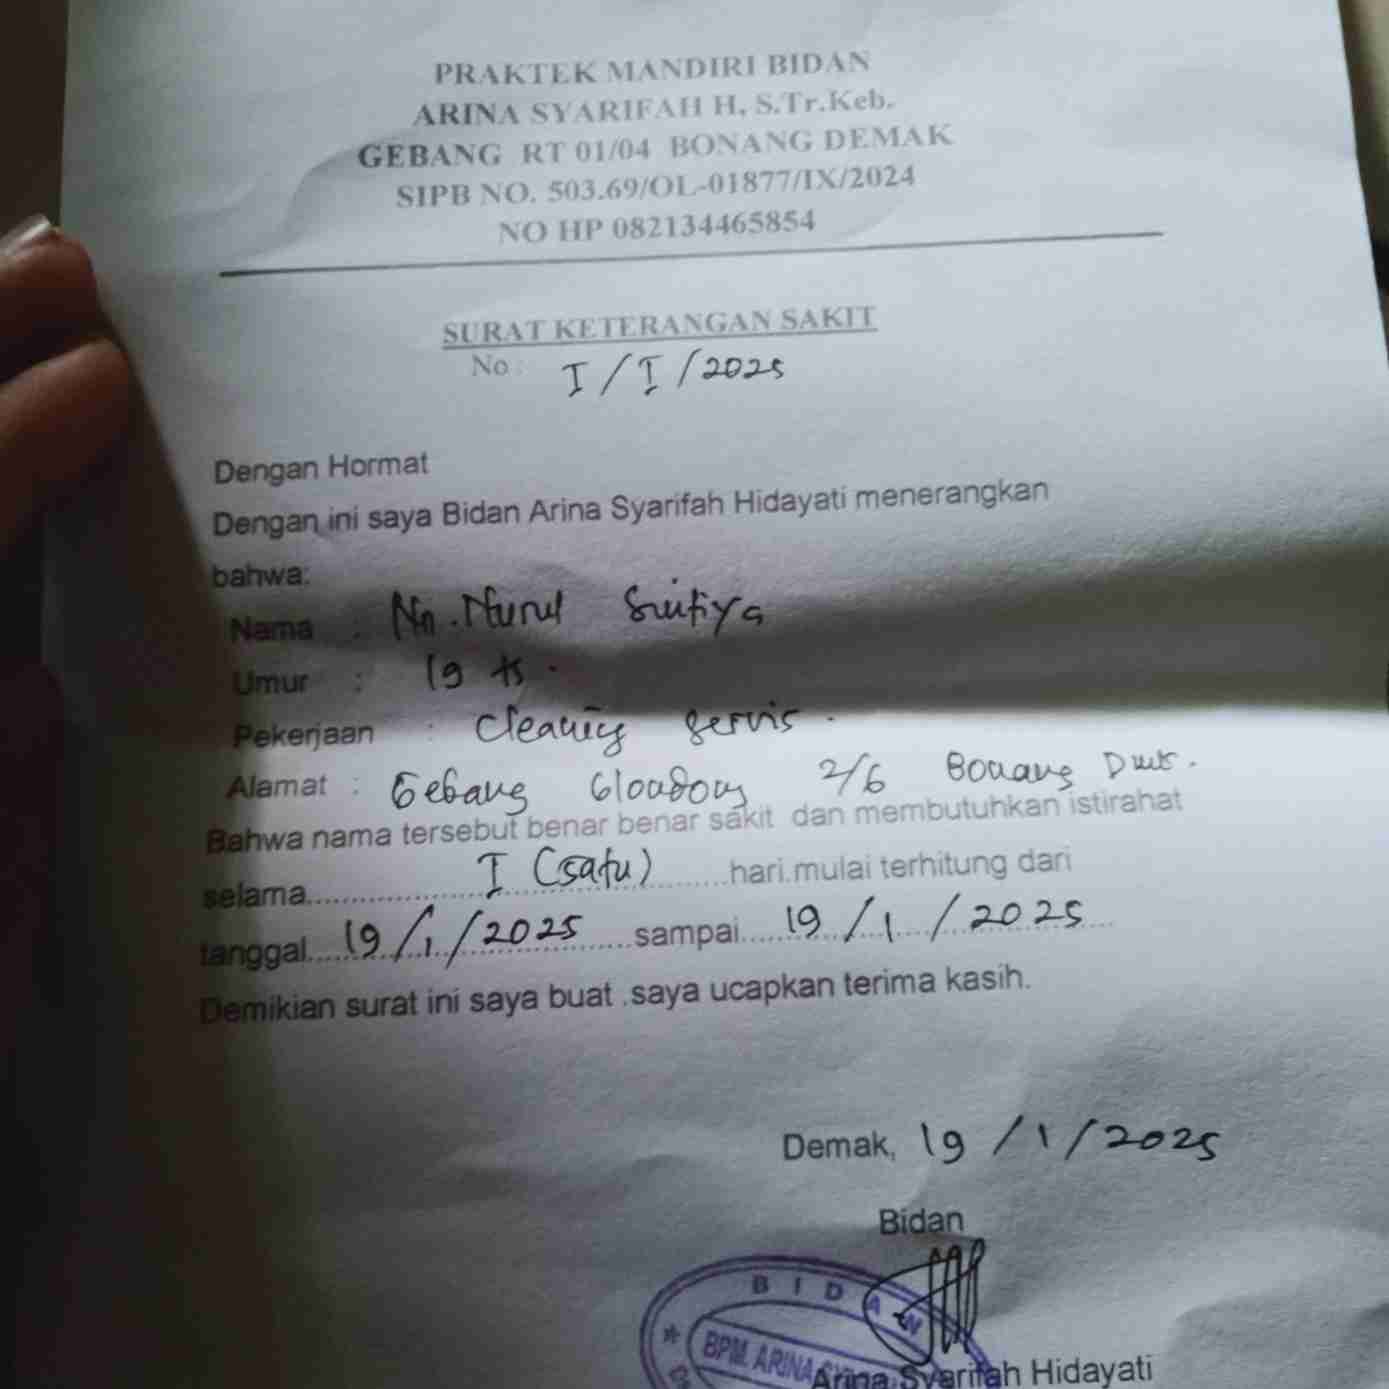 PRAKTEK MANDIRI BIDAN
ARINA SYARIFAH H, S.Tr.Keb.
GEBANG RT 01/04 BONANG DEMAK
SIPB NO. 503.69/OL-01877/IX/2024
NO HP 082134465854
SURAT KETERANGAN SAKIT
No : I / I / 2025
Dengan Hormat
Dengan ini saya Bidan Arina Syarifah Hidayati menerangkan
bahwa:
Nama : Nn. Nurul
Umur : 19 th.
Pekerjaan : Cleaning servis.
Alamat : Gebang 2/6 Bonang Dmk.
Bahwa nama tersebut benar benar sakit dan membutuhkan istirahat
selama I (satu) hari.mulai terhitung dari
tanggal 19/1/2025 sampai 19/1/2025
Demikian surat ini saya buat .saya ucapkan terima kasih.
Demak, 19/1/2025
Bidan
BIDAN
BPM. ARINA
Arina Syarifah Hidayati